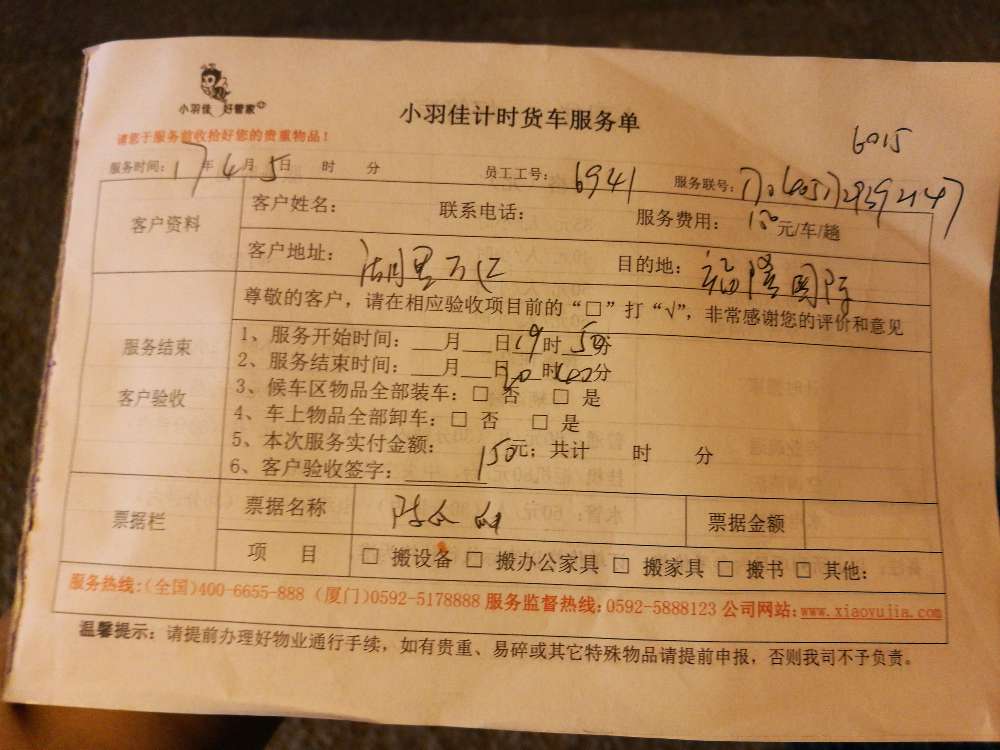 小羽佳 好管家
小羽佳计时货车服务单
6015
请您于服务验收拾好您的贵重物品！
服务时间：17年4月5日 时 分 员工工号：6941 服务联号：
客户资料
客户姓名： 联系电话： 服务费用： 元/车/趟
客户地址：湖里万江 目的地：福隆国际
服务结束
客户验收
尊敬的客户，请在相应验收项目前的“□”打“√”，非常感谢您的评价和意见
1、服务开始时间：___月___日19时50分
2、服务结束时间：___月___日 时 分
3、候车区物品全部装车：□ 否 □ 是
4、车上物品全部卸车：□ 否 □ 是
5、本次服务实付金额：150元；共计 时 分
6、客户验收签字：
票据栏
票据名称 票据金额
项 目 □ 搬设备 □ 搬办公家具 □ 搬家具 □ 搬书 □ 其他：
服务热线：(全国)400-6655-888 (厦门)0592-5178888 服务监督热线：0592-5888123 公司网站：www.xiaoyujia.com
温馨提示：请提前办理好物业通行手续，如有贵重、易碎或其它特殊物品请提前申报，否则我司不予负责。